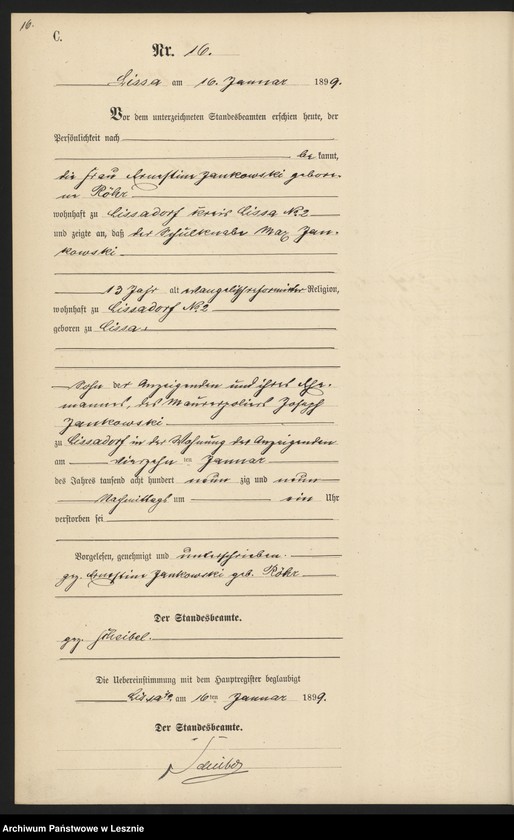 16.
C.
Nr. 16.
Lissa am 16. Januar 1899.
Vor dem unterzeichneten Standesbeamten erschien heute, der
Persönlichkeit nach
be kannt,
die Frau Ernestine Jankowski gebore-
ne Röhr
wohnhaft zu Lissadorf Kreis Lissa No. 2
und zeigte an, daß der Schulknabe Max Jan-
kowski
13 Jahr alt evangelisch reformirter Religion,
wohnhaft zu Lissadorf No. 2
geboren zu Lissa,
Sohn der Anzeigenden und ihres Ehe-
mannes, des Maurerpoliers Joseph
Jankowski
zu Lissadorf in der Wohnung der Anzeigenden
am vierzehn ten Januar
des Jahres tausend acht hundert neun zig und neun
Nachmittags um ein Uhr
verstorben sei
Vorgelesen, genehmigt und unterschrieben.
gez. Ernestine Jankowski geb. Röhr
Der Standesbeamte.
gez. Scheibel.
Die Uebereinstimmung mit dem Hauptregister beglaubigt
Lissa am 16ten Januar 1899.
Der Standesbeamte.
Scheibel
Archiwum Państwowe w Lesznie